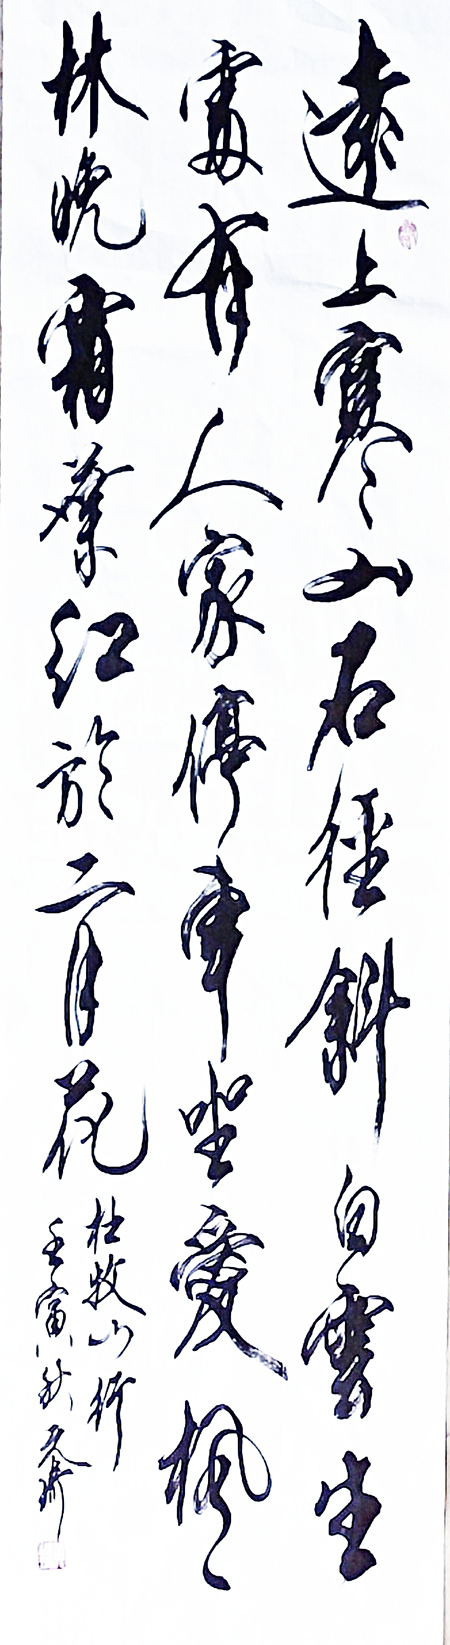 遠上寒山石徑斜白雲生
處有人家停車坐愛楓
林晚霜葉紅於二月花
杜牧山行
壬寅秋